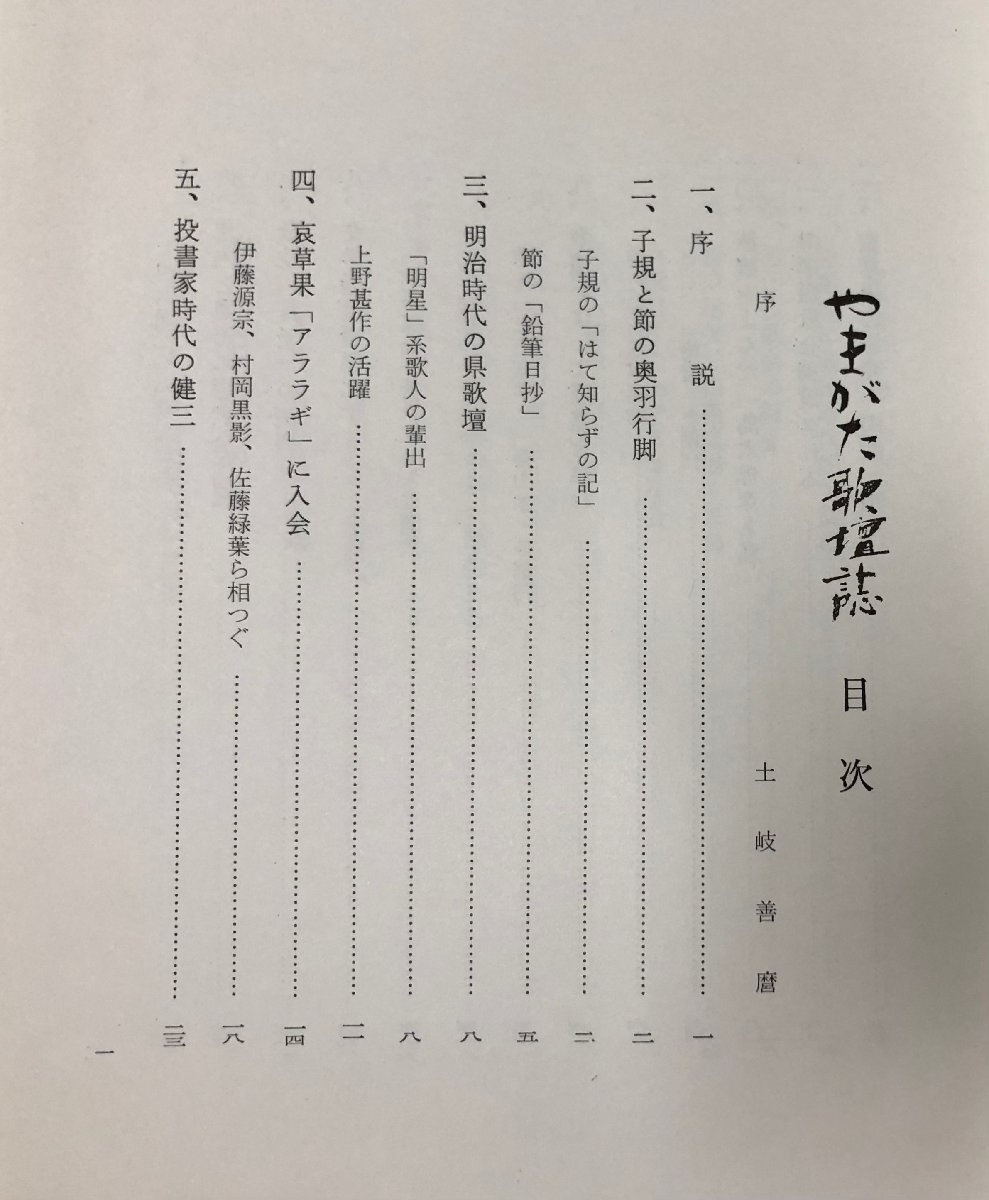 やまがた歌壇誌 目次
序 土岐善麿
一、序説……一
二、子規と節の奥羽行脚……二
子規の「はて知らずの記」……二
節の「鉛筆日抄」……五
三、明治時代の県歌壇……八
「明星」系歌人の輩出……八
上野甚作の活躍……一一
四、哀草果「アララギ」に入会……一四
伊藤源宗、村岡黒影、佐藤緑葉ら相つぐ……一八
五、投書家時代の健三……二三
一